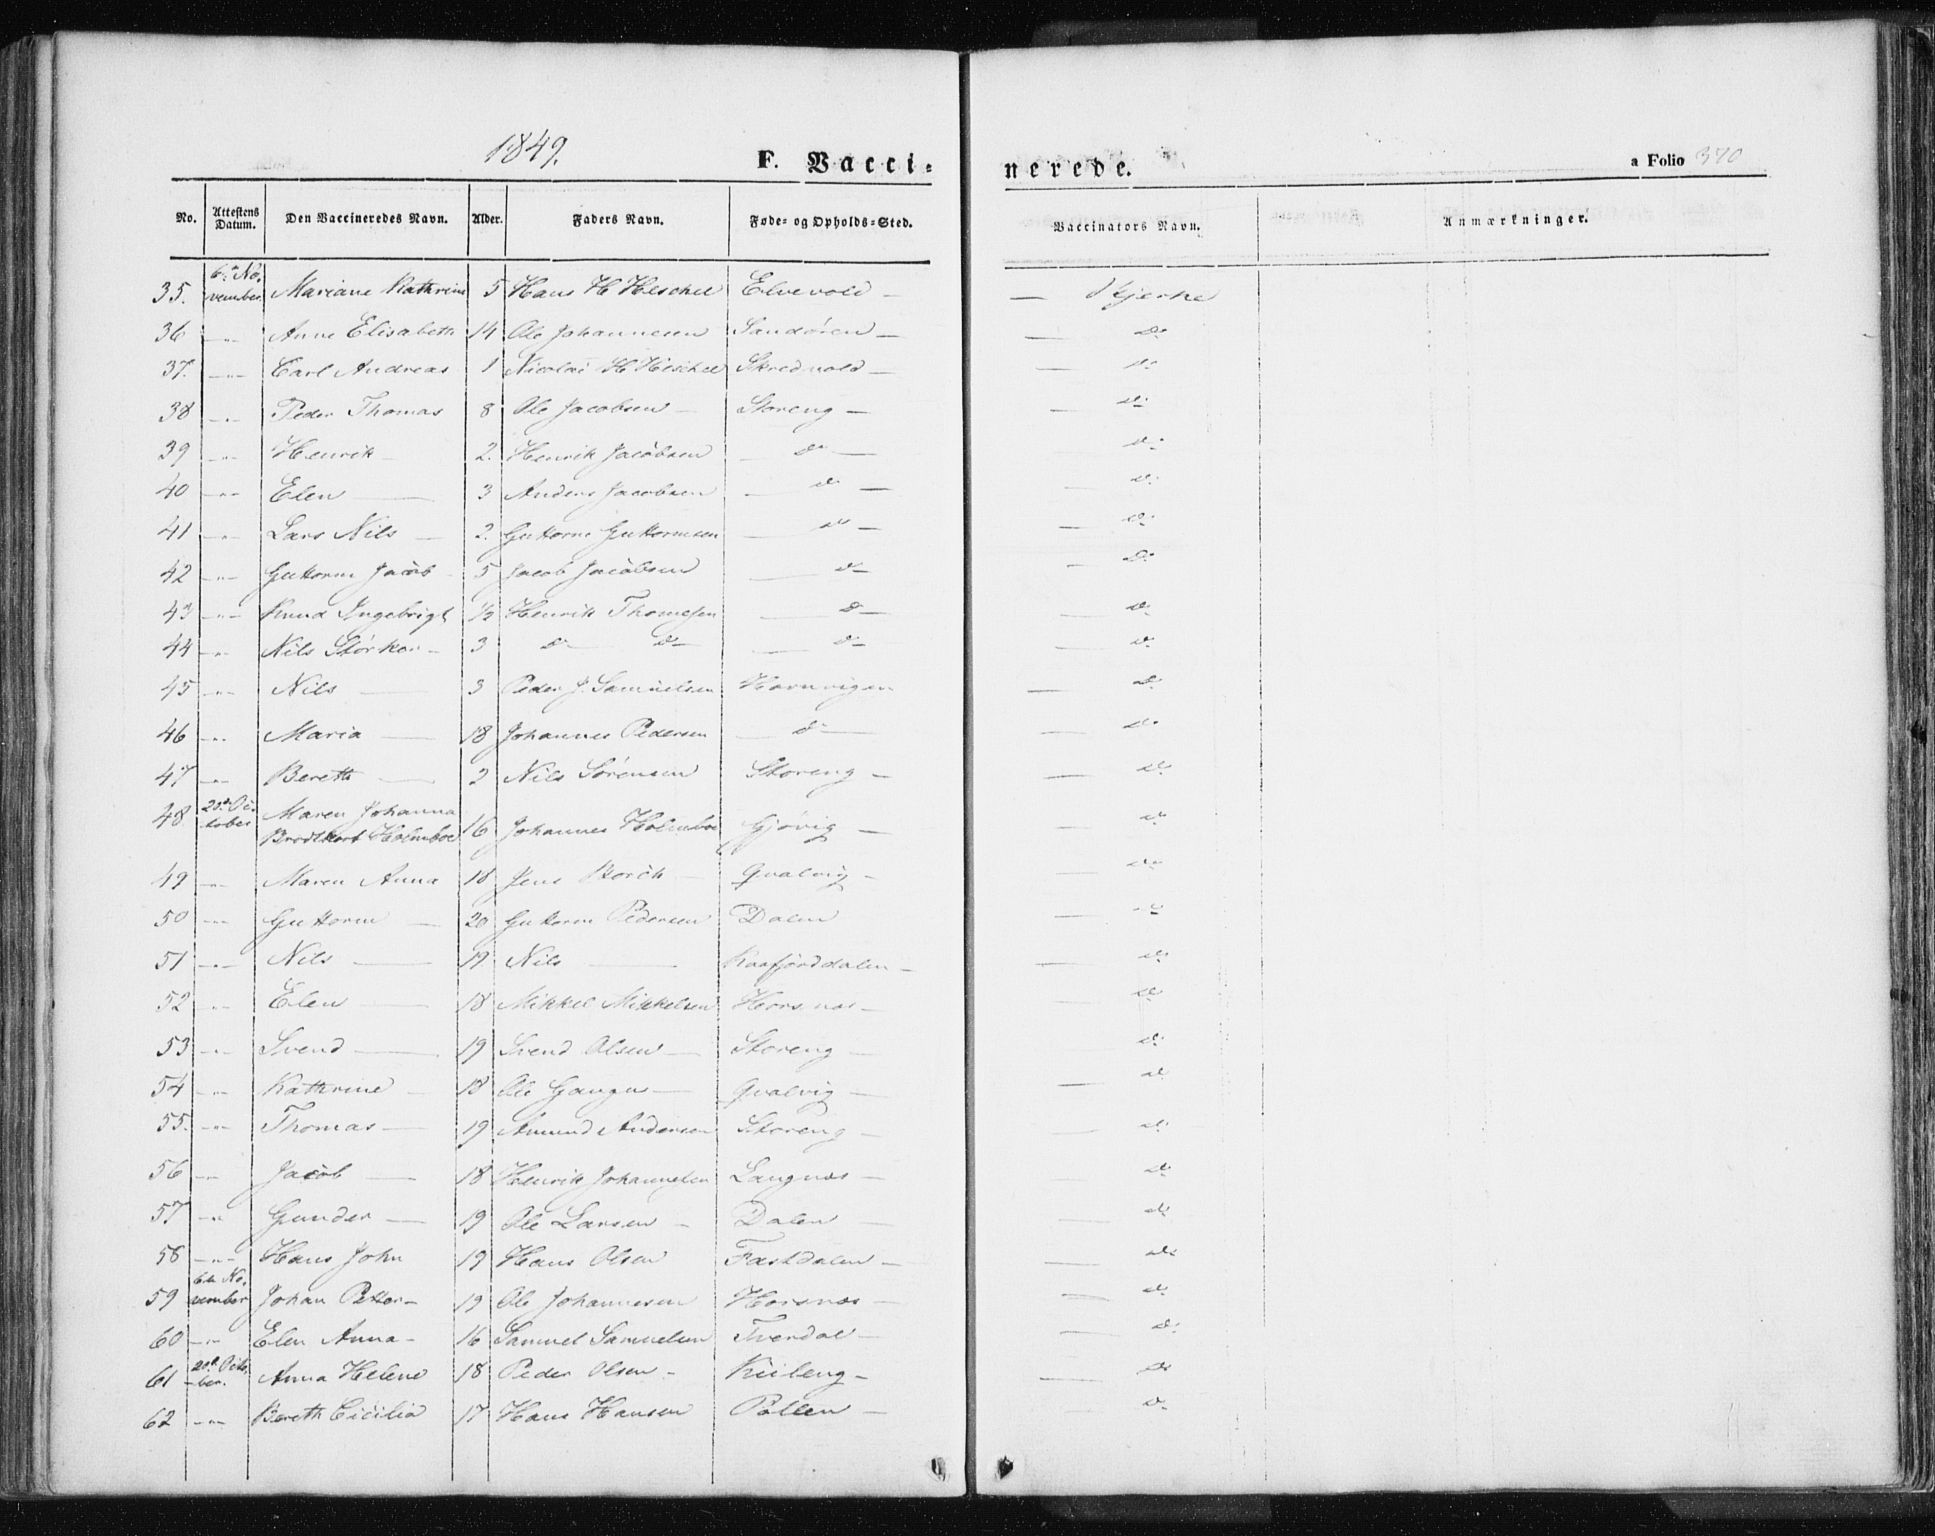 1849.
F. Vacci-
nerede.
a Folio 370
No. Attestens Datum. Den Vaccineredes Navn. Alder. Faders Navn. Føde- og Opholds-Sted. Vaccinators Navn. Anmærkninger.
35. 6te No- vember Mariane Kathrine 5 Hans H Heschel Elvevold — — Skjerke
36 -"- Anne Elisabeth 14 Ole Johannesen Sandøren — — Do
37. -"- Carl Andreas 1 Nicolai H Heschel Skredvold — — do
38 -"- Peder Thomas 8 Ole Jacobsen — Storeng — — do
39 -"- Henrik — 2. Henrik Jacobsen — Do — — do
40 -"- Elen — 3 Anders Jacobsen — do — — do
41 -"- Lars Nils — 2. Guttorm Guttormsen — do — — do
42 -"- Guttorm Jacob - 5 Jacob Jacobsen — do — Do
43 -"- Knud Ingebrigt 1/2 Henrik Thomesen — do — do
44 -"- Nils Størker - 3 do do — do — do
45 -"- Nils — 3 Peder J. Samuelsen Havnvigen — do
46 -"- Maria — 18 Johannes Pedersen — do — — do
47 -"- Bereth — 2 Nils Sørensen Storeng — — do
48 20de Oc- tober Maren Johanna
Brodtkorb Holmboe 16 Johannes Holmboe Gjøvig — — do
49 -"- Maren Anna 18 Jens Borch — Qvalvig — — do
50 -"- Guttorm — 20 Guttorm Pedersen Dalen — do
51 -"- Nils — 19 Nils — Kaafjorddalen — — do
52 -"- Elen — 18 Mikkel Mikkelsen Horsnæs — — do
53 -"- Svend — 19 Svend Olsen — Storeng — — do
54 -"- Kathrine — 18 Ole — Qvalvig — — do
55. -"- Thomas — 19 Amund Andersen Storeng — — do
56 -"- Jacob — 18 Henrik Johannesen Langnæs — — do
57 -"- Gunder — 19 Ole Larsen — Dalen — — do
58 -"- Hans John 19 Hans Olsen Fastdalen — — do
59 6te No- vember Johan Petter — 19 Ole Johannesen Horsnæs — — do
60 -"- Elen Anna — 16 Samuel Samuelsen Tverdal — — do
61 20de Octo- ber. Anna Helene 18 Peder Olsen — Kiileng — — do
62 -"- Bereth Cicilia 17 Hans Hansen Pollen — do